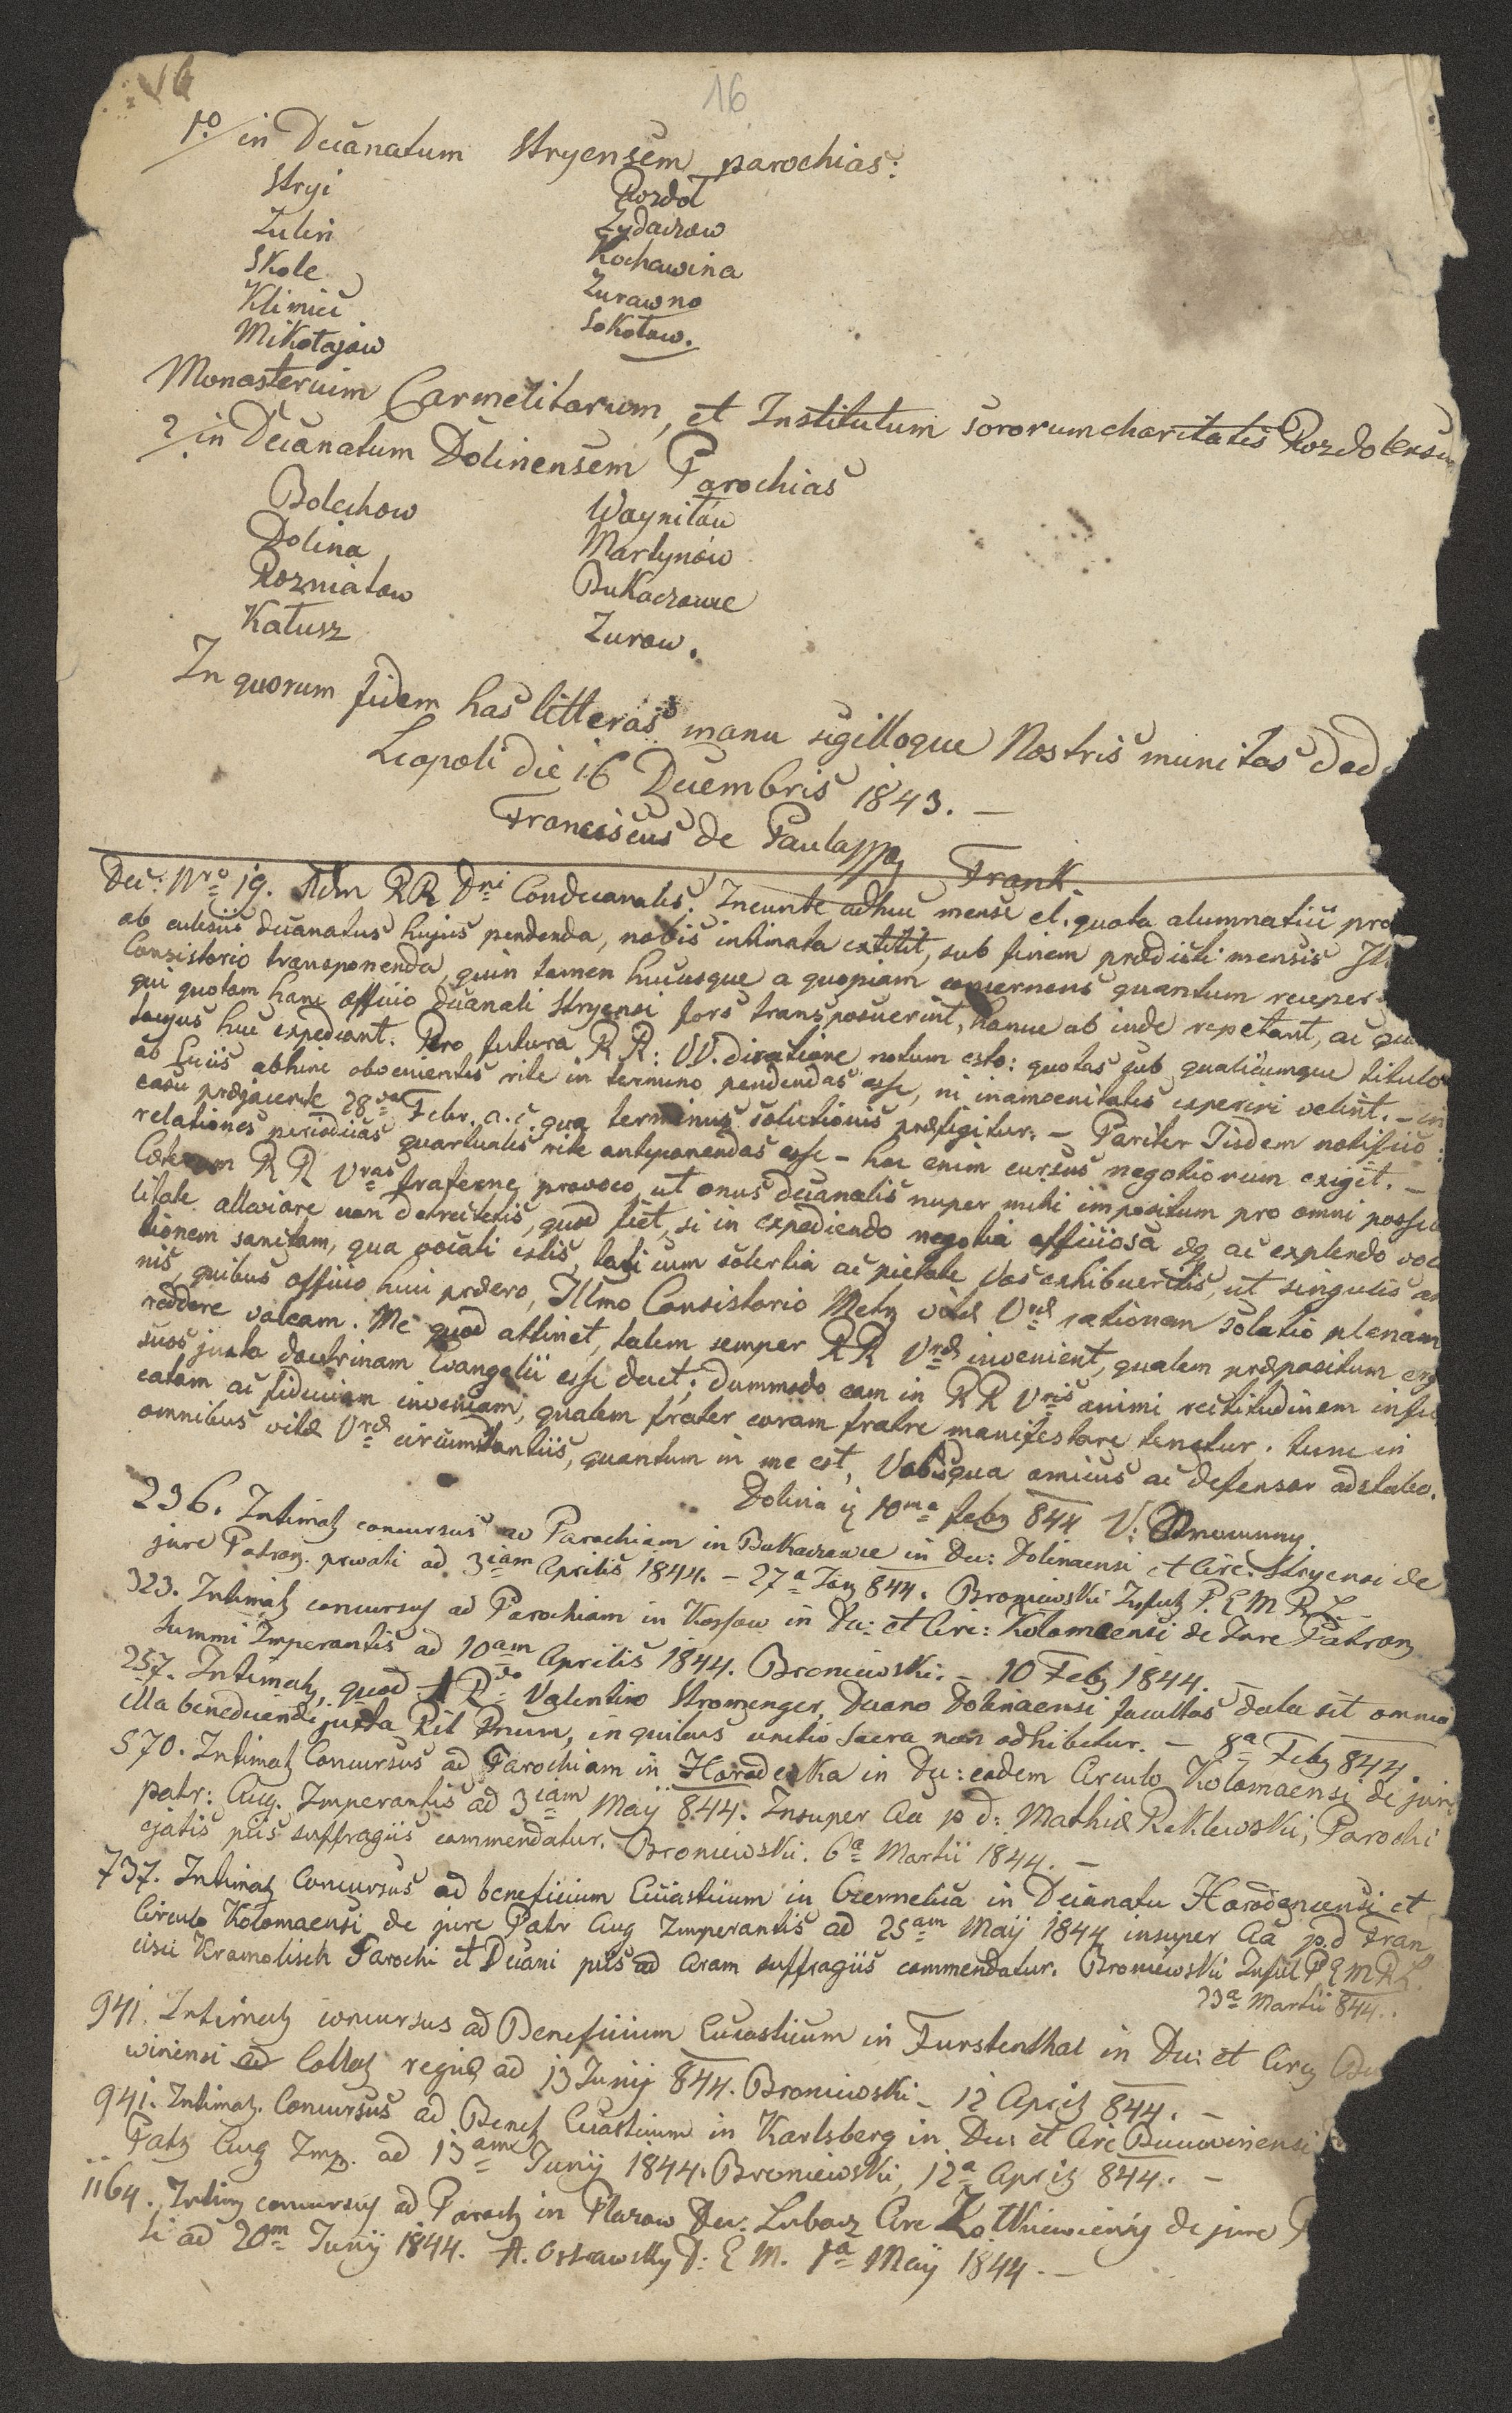 16
1º/ in Decanatum Stryensem parochias:
Stryi Rozdoł
Zulin Zydaczow
Skole Kochawina
Klimiec Zurawno
Mikołajow Sokołow.
Monasterium Carmelitarum, et Institutum sororum charitatis Rozdolens
2/ in Decanatum Dolinensem Parochias
Bolechow Woyniłow
Dolina Martynow
Rozniatow Bukaczowce
Kałusz Zurow.
In quorum fidem has litteras manu sigilloque Nostris munitas ded
Leopoli die 16 Decembris 1843. —
Franciscus de Paula Frank.
Dec: Nro 19. Adm RR Dni Condecanales. Ineunte adhuc mense el. quota alumnatici pro
ab eclesiis decanatus hujus pendenda, nobis intimata extitit, sub finem prædicti mensis
Consistorio transponenda, quin tamen hucusque a quopiam concernens quantum receper
qui quotam hanc officio decanali Stryensi fors transposuerint, hancce ab inde repetant, ac
locyus huc expediant. Pro futura RR: VV. directione notum esto: quotas sub qualicumque titulo
ab hinc obvenientes rite in termino pendendas esse, ni inamoenitates experiri velint. — in
casu præjacente 28va Febr. a. c. qua terminus solutionis præfigitur. — Pariter Iisdem notifico:
relationes periodicas quartuales rite anteponendas esse — hoc enim cursus negotiorum exigit. —
Coeterum RR Vras fraterne provoco, ut onus decanalis nuper mihi impositum pro omni possi
litate alleviare non detrectetis, quod fiet, si in expediendo negotia officiosa æq ac explendo voca
tionem sanctam, qua vocati estis, tali cum solertia ac pietate Vos exhibueritis, ut singulis an
nis, quibus officio huic præero, Illmo Consistorio Metr vitæ Vræ rationem solatio plenam
reddere valeam. Me quod attinet, talem semper RR Vræ invenient, qualem præpositum erga
suos juxta doctrinam Evangelii esse decet; dummodo eam in RR Vris animi rectitudinem
catam ac fiduciam inveniam, qualem frater coram fratre manifestare tenetur. tunc in
omnibus vitæ Vræ circumstantiis, quantum in me est, Vobis qua amicus ac defensor adstabo.
Dolina 10ma Febr 844 V:
236. Intimat concursus ad Parochiam in Bukaczowce in Dec: Dolinaensi et Circ: Stryensi de
jure Patron. privati ad 3iam Aprilis 1844. — 27a Jan 844. Broniewski Infult P. E M R L. —
323. Intimat concursus ad Parochiam in Kossow in Dec: et Circ: Kolomeensi de Jure Patron
summi Imperantis ad 10am Aprilis 1844. Broniewski. — 10 Feb 1844.
257. Intimat, quod A Rdo Valentino Stromenger, Decano Dolinaensi facultas data sit omnia
illa benedicendi juxta Rit Rnum, in quibus unctio sacra non adhibetur. — 8a Feb 844.
570. Intimat Concursus ad Parochiam in Horodenka in Dec: eodem Circulo Kolomaensi de jure
patr: Aug. Imperantis ad 3iam Maij 844. Insuper Aa p d: Mathiæ Reklewski, Parochi
ejatis piis suffragiis commendatur. Broniewski. 6a Martii 1844. —
737. Intimat Concursus ad beneficium Eccasticum in Czernelica in Decanatu Horodencensi et
Circulo Kolomaensi de jure Patr Aug Imperantis ad 25am Maij 1844 insuper Aa p.d Fran
cisci Kramolisch Parochi et Decani piis ad Aram suffragiis commendatur. Broniewski Inful P E M R L.
23a Martii 844.
941. Intimat concursus ad Beneficium Eccasticum in Furstenthal in Dec: et Circ Bu
winensi ad Collat regiæ ad 13 Junij 844. Broniewski — 12 April 844. —
941. Intimat. Concursus ad Benef Eccasticum in Karlsberg in Dec: et Circ Bucovinensi
Patr Aug Imp. ad 13am Junij 1844. Broniewski, 12a April 844. —
1164. Intim concursus ad Paroch in Plazow Dec: Lubacz Circ Zołkiewiensi de jure P
ti ad 20m Junij 1844. A. Ostrawsky P: E M. 1a Maij 1844. —